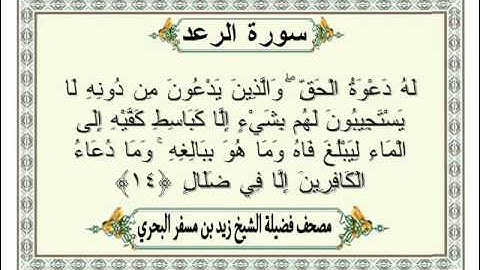 سورة الرعد
لَهُ دَعْوَةُ الْحَقِّ ۖ وَالَّذِينَ يَدْعُونَ مِن دُونِهِ لَا
يَسْتَجِيبُونَ لَهُم بِشَيْءٍ إِلَّا كَبَاسِطِ كَفَّيْهِ إِلَى
الْمَاءِ لِيَبْلُغَ فَاهُ وَمَا هُوَ بِبَالِغِهِ ۚ وَمَا دُعَاءُ
الْكَافِرِينَ إِلَّا فِي ضَلَالٍ ﴿١٤﴾
مصحف فضيلة الشيخ زيد بن مسفر البحري